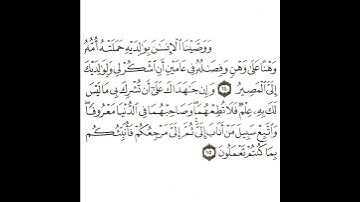 وَوَصَّيْنَا ٱلْإِنسَٰنَ بِوَٰلِدَيْهِ حَمَلَتْهُ أُمُّهُۥ
وَهْنًا عَلَىٰ وَهْنٍ وَفِصَٰلُهُۥ فِى عَامَيْنِ أَنِ ٱشْكُرْ لِى وَلِوَٰلِدَيْكَ
إِلَىَّ ٱلْمَصِيرُ ١٤ وَإِن جَٰهَدَاكَ عَلَىٰٓ أَن تُشْرِكَ بِى مَا لَيْسَ
لَكَ بِهِۦ عِلْمٌ فَلَا تُطِعْهُمَا وَصَاحِبْهُمَا فِى ٱلدُّنْيَا مَعْرُوفًا
وَٱتَّبِعْ سَبِيلَ مَنْ أَنَابَ إِلَىَّ ثُمَّ إِلَىَّ مَرْجِعُكُمْ فَأُنَبِّئُكُم
بِمَا كُنتُمْ تَعْمَلُونَ ١٥